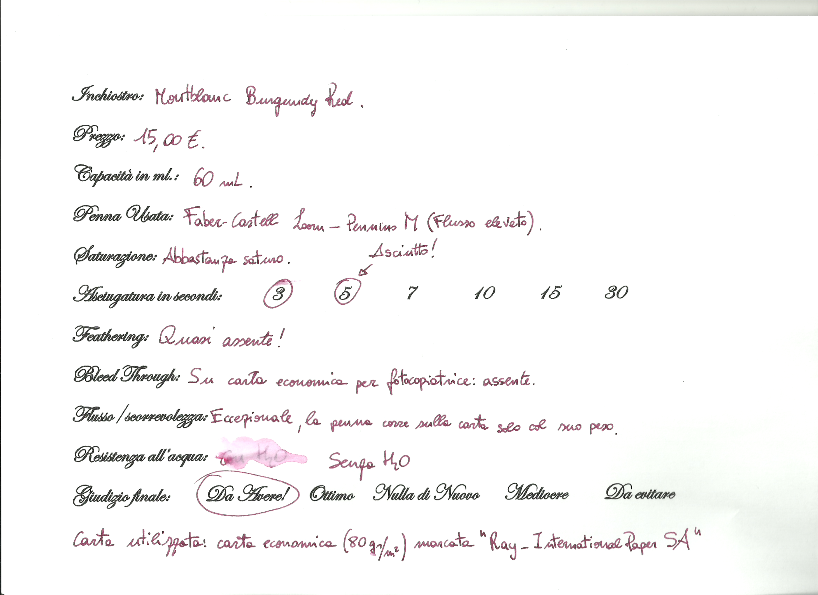 Inchiostro: Montblanc Burgundy Red.
Prezzo: 15,00 €.
Capacità in ml.: 60 mL.
Penna Usata: Faber-Castell Loom - Pennino M (Flusso elevato).
Saturazione: Abbastanza saturo. Asciutto!
Asciugatura in secondi: 3 5 7 10 15 30
Feathering: Quasi assente!
Bleed Through: Su carta economica per fotocopiatrice: assente.
Flusso / scorrevolezza: Eccezionale, la penna corre sulla carta solo col suo peso.
Resistenza all'acqua: Con H2O Senza H2O
Giudizio finale: Da Avere! Ottimo Nulla di Nuovo Mediocre Da evitare
Carta utilizzata: carta economica (80 gr/m²) marcata "Ray - International Paper SA"